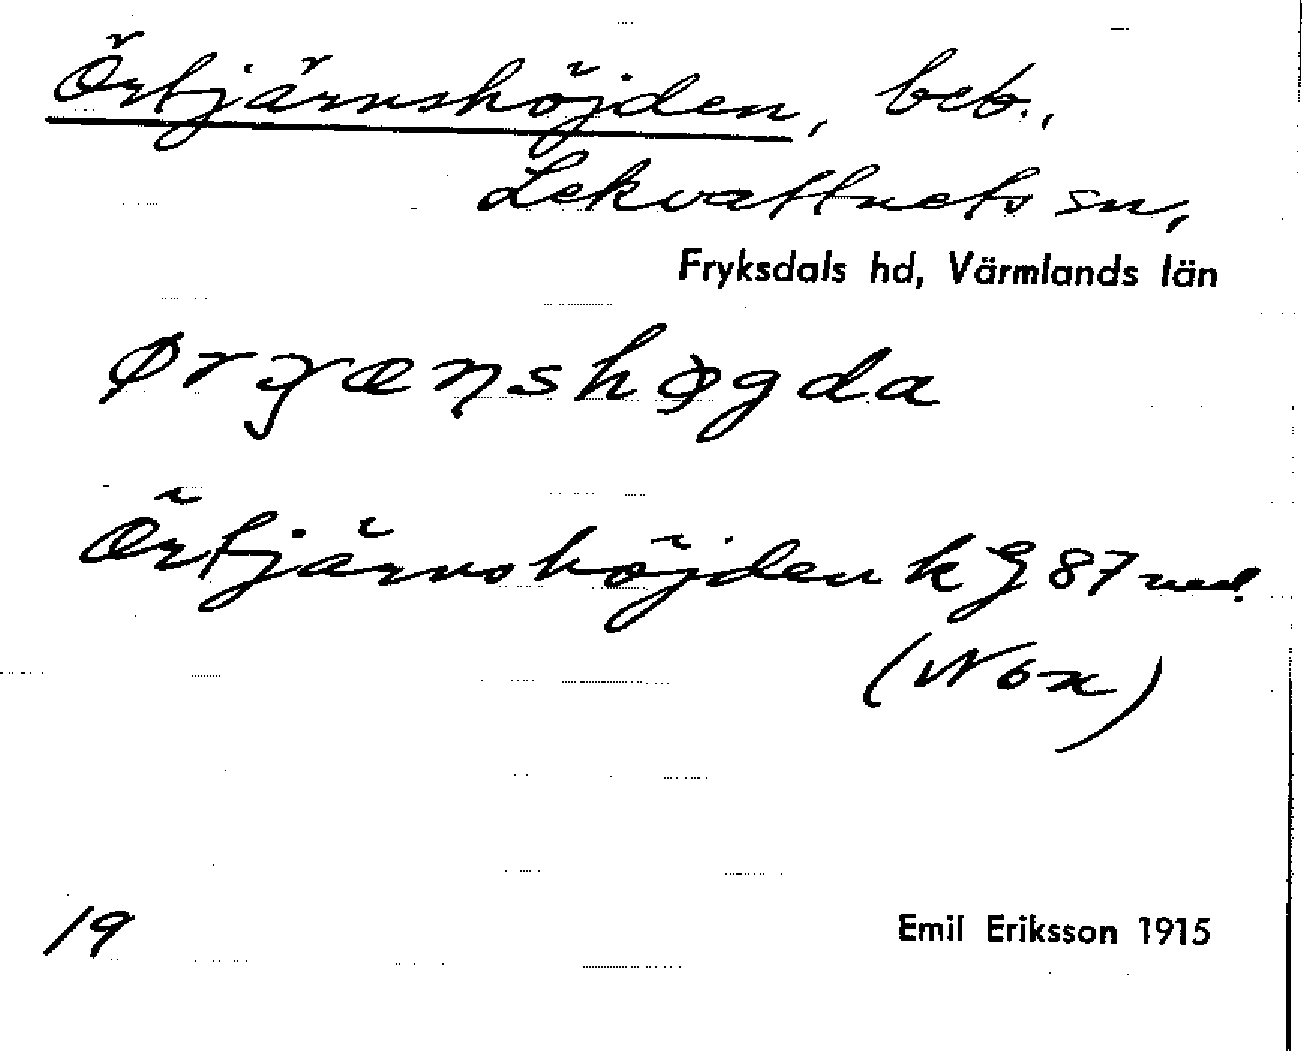 Örtjärnshöjden, beb.,
Lekvattnets sn,
Fryksdals hd, Värmlands län
ørɣænshøgda
Örtjärnshöjden k G 87 ned.
(Nox)
19
Emil Eriksson 1915